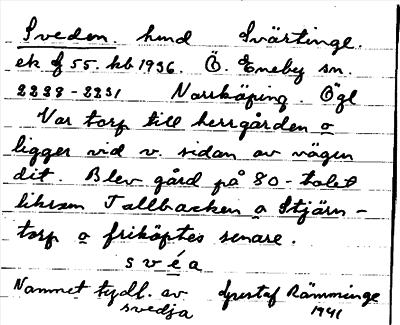 Sveden. hmd Svärtinge.
ek f 55. kb 1936. Ö. Eneby sn.
2228-2231 Norrköping. Ögl
Var torp till herrgården o
ligger vid v. sidan av vägen
dit. Blev gård på 80-talet
liksom Tallbacken o Stjärn-
torp o friköptes senare.
s v é a
Namnet tydl. av Gustaf Rämminge
svedja 1941